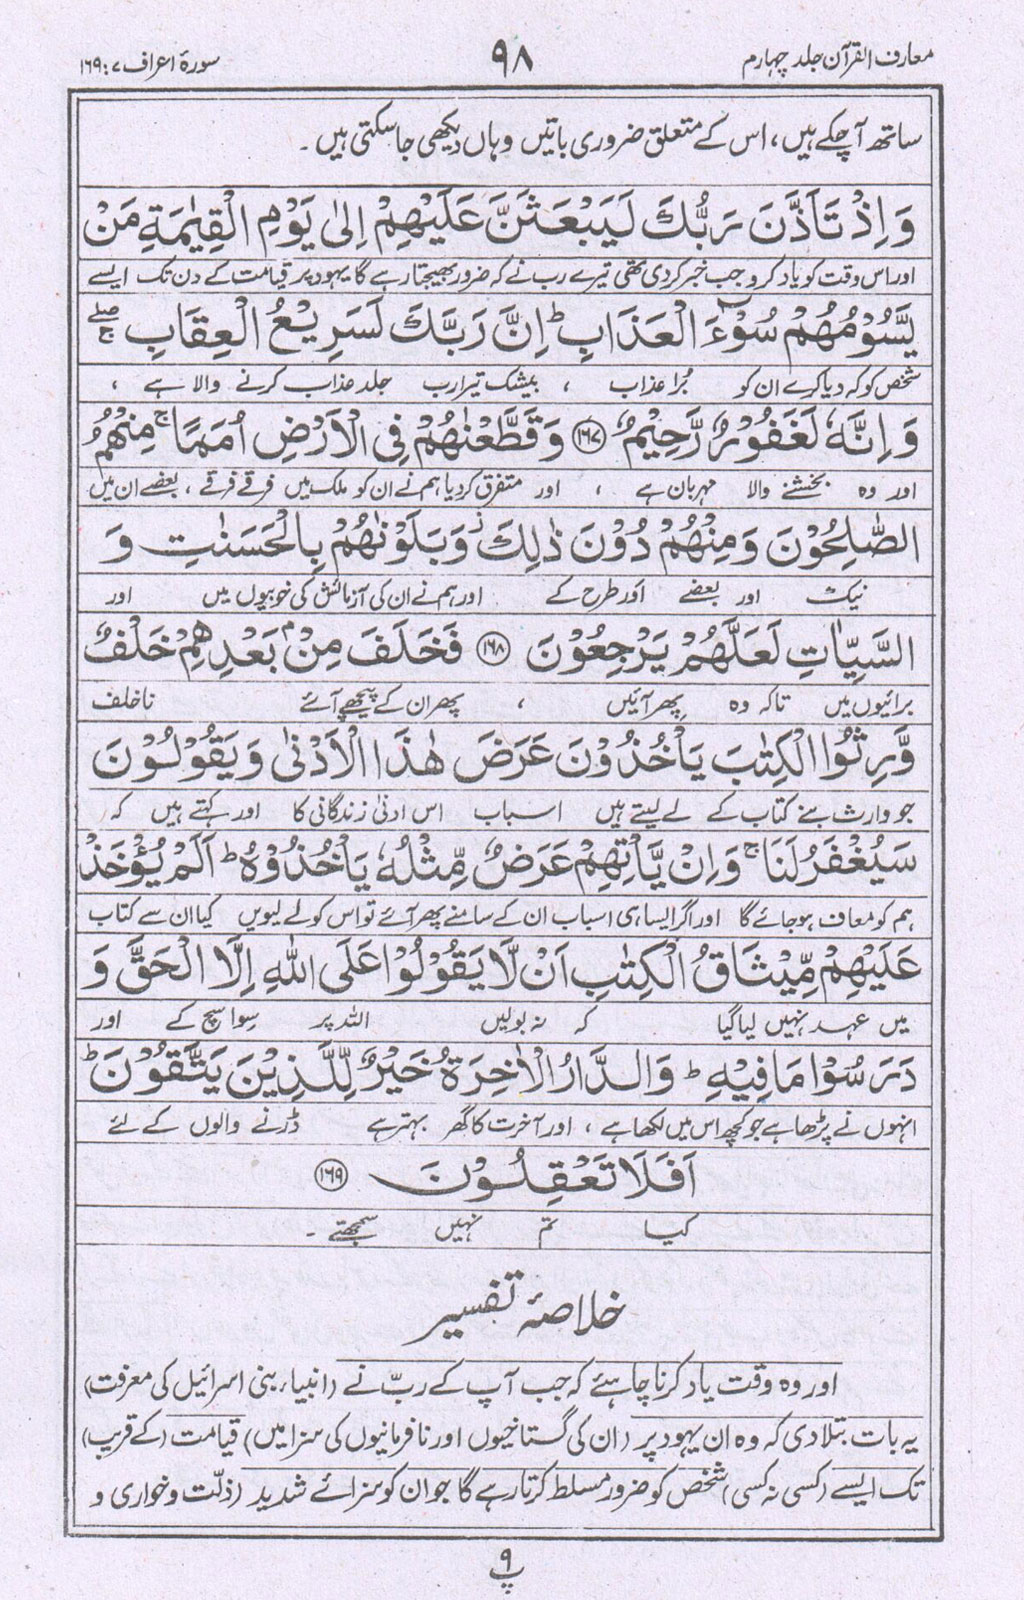 معارف القرآن جلد چہارم
۹۸
سورۂ اعراف ۷: ۱۶۹
ساتھ آچکے ہیں، اس کے متعلق ضروری باتیں وہاں دیکھی جاسکتی ہیں۔
وَاِذْ تَاَذَّنَ رَبُّكَ لَيَبْعَثَنَّ عَلَيْهِمْ اِلٰى يَوْمِ الْقِيٰمَةِ مَنْ
اور اس وقت کو یاد کرو جب خبر کردی تھی تیرے رب نے کہ ضرور بھیجتا رہے گا یہود پر قیامت کے دن تک ایسے
يَّسُوْمُهُمْ سُوْٓءَ الْعَذَابِ ؕ اِنَّ رَبَّكَ لَسَرِيْعُ الْعِقَابِ ۚۖ
شخص کو کہ دیا کرے ان کو بُرا عذاب ، بیشک تیرا رب جلد عذاب کرنے والا ہے ،
وَاِنَّهٗ لَغَفُوْرٌ رَّحِيْمٌ ﴿۱۶۷﴾ وَقَطَّعْنٰهُمْ فِي الْاَرْضِ اُمَمًا ۚ مِنْهُمُ
اور وہ بخشنے والا مہربان ہے ، اور متفرق کردیا ہم نے ان کو ملک میں فرقے فرقے ، بعضے ان میں
الصّٰلِحُوْنَ وَمِنْهُمْ دُوْنَ ذٰلِكَ ۫ وَبَلَوْنٰهُمْ بِالْحَسَنٰتِ وَ
نیک اور بعضے اور طرح کے اور ہم نے ان کی آزمائش کی خوبیوں میں اور
السَّيِّاٰتِ لَعَلَّهُمْ يَرْجِعُوْنَ ﴿۱۶۸﴾ فَخَلَفَ مِنْۢ بَعْدِهِمْ خَلْفٌ
برائیوں میں تاکہ وہ پھر آئیں ، پھر ان کے پیچھے آئے ناخلف
وَّرِثُوا الْكِتٰبَ يَاْخُذُوْنَ عَرَضَ هٰذَا الْاَدْنٰى وَيَقُوْلُوْنَ
جو وارث بنے کتاب کے لے لیتے ہیں اسباب اس ادنیٰ زندگانی کا اور کہتے ہیں کہ
سَيُغْفَرُ لَنَا ۚ وَاِنْ يَّاْتِهِمْ عَرَضٌ مِّثْلُهٗ يَاْخُذُوْهُ ؕ اَلَمْ يُؤْخَذْ
ہم کو معاف ہوجائے گا اور اگر ایسا ہی اسباب ان کے سامنے پھر آئے تو اس کو لے لیویں کیا ان سے کتاب
عَلَيْهِمْ مِّيْثَاقُ الْكِتٰبِ اَنْ لَّا يَقُوْلُوْا عَلَى اللّٰهِ اِلَّا الْحَقَّ وَ
میں عہد نہیں لیا گیا کہ نہ بولیں اللہ پر سوا سچ کے اور
دَرَسُوْا مَا فِيْهِ ؕ وَالدَّارُ الْاٰخِرَةُ خَيْرٌ لِّلَّذِيْنَ يَتَّقُوْنَ ؕ
انہوں نے پڑھا ہے جو کچھ اس میں لکھا ہے ، اور آخرت کا گھر بہتر ہے ڈرنے والوں کے لئے
اَفَلَا تَعْقِلُوْنَ ﴿۱۶۹﴾
کیا تم نہیں سمجھتے ۔
خلاصۂ تفسیر
اور وہ وقت یاد کرنا چاہئے کہ جب آپ کے ربّ نے (انبیاء بنی اسرائیل کی معرفت)
یہ بات بتلا دی کہ وہ ان یہود پر (ان کی گستاخیوں اور نافرمانیوں کی سزا میں) قیامت (کے قریب)
تک ایسے (کسی نہ کسی) شخص کو ضرور مسلط کرتا رہے گا جو ان کو سزائے شدید (ذلّت و خواری و
پ ۹